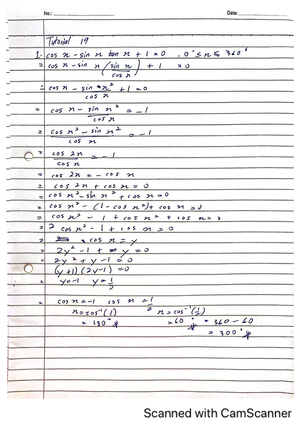 No.: Date:
Tutorial 19
1. cos x - sin x tan x + 1 = 0 , 0° ≤ x ≤ 360°
= cos x - sin x (sin x / cos x) + 1 = 0
= cos x - sin x² / cos x + 1 = 0
= cos x - sin x² / cos x = -1
= cos x² - sin x² / cos x = -1
= cos 2x / cos x = -1
= cos 2x = - cos x
= cos 2x + cos x = 0
= cos x² - sin x² + cos x = 0
= cos x² - (1 - cos x²) + cos x = 0
= cos x² - 1 + cos x² + cos x = 0
= 2 cos x² - 1 + cos x = 0
= cos x = y
= 2y² - 1 + y = 0
= 2y² + y - 1 = 0
(y+1)(2y-1) = 0
= y = -1 y = 1/2
= cos x = -1 cos x = 1/2
x = cos⁻¹(1) x = cos⁻¹(1/2)
= 180° = 60° = 360 - 60
= 300°
Scanned with CamScanner